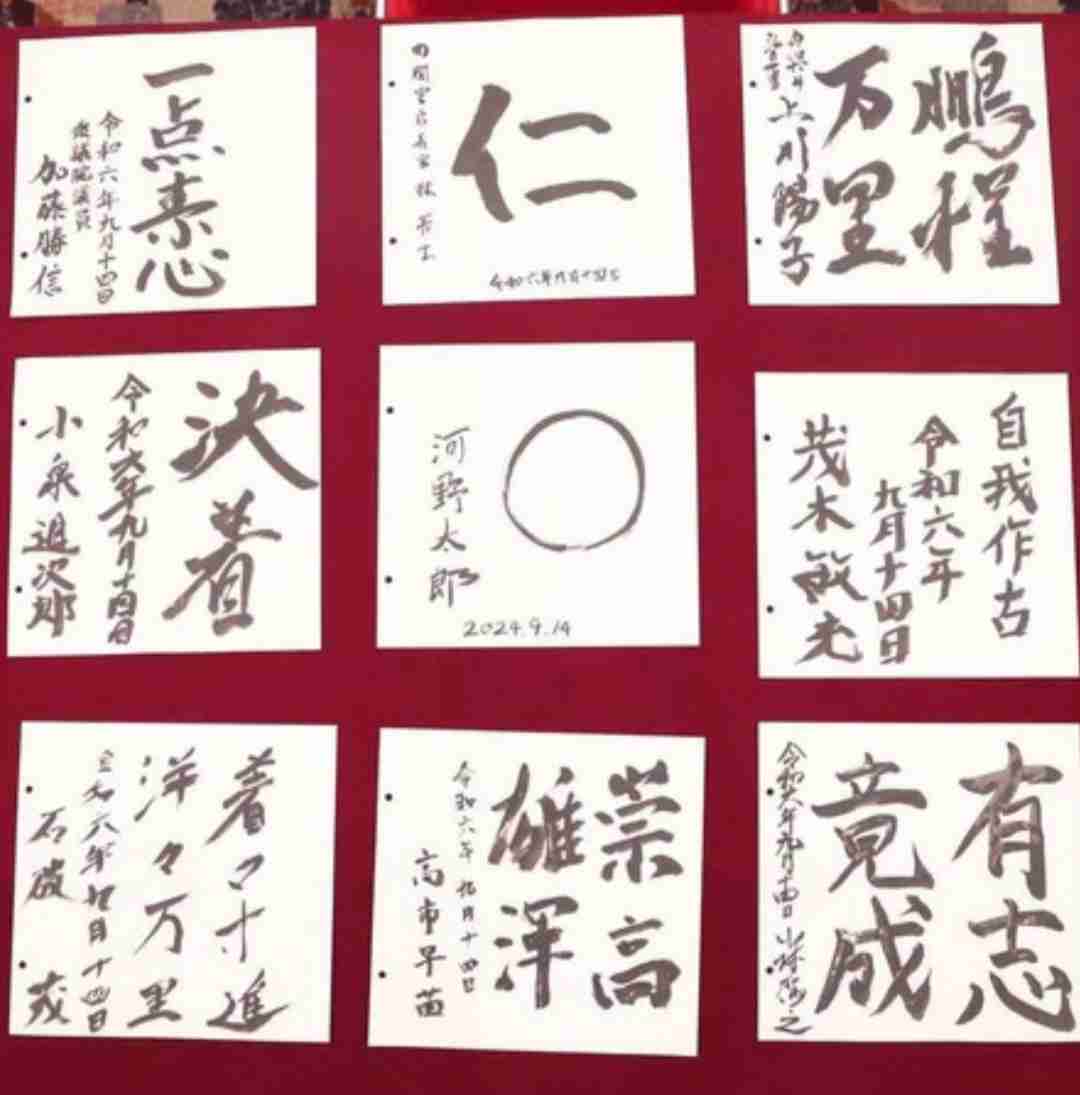 一点素心
令和六年九月十四日
衆議院議員
加藤勝信
仁
内閣官房長官 林 芳正
令和六年九月十四日
鵬程
万里
上川陽子
決着
令和六年九月十四日
小泉進次郎
河野太郎
2024.9.14
自我作古
令和六年
九月十四日
茂木敏充
着々寸進
洋々万里
令和六年九月十四日
石破 茂
崇高
雄渾
令和六年 九月十四日
高市早苗
有志
竟成
令和六年九月十四日 小林鷹之